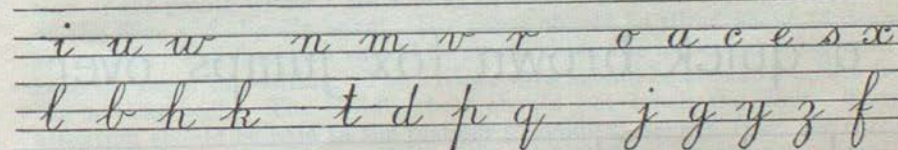 i u w n m v r o a c e s x
l b h k t d p q j g y z f